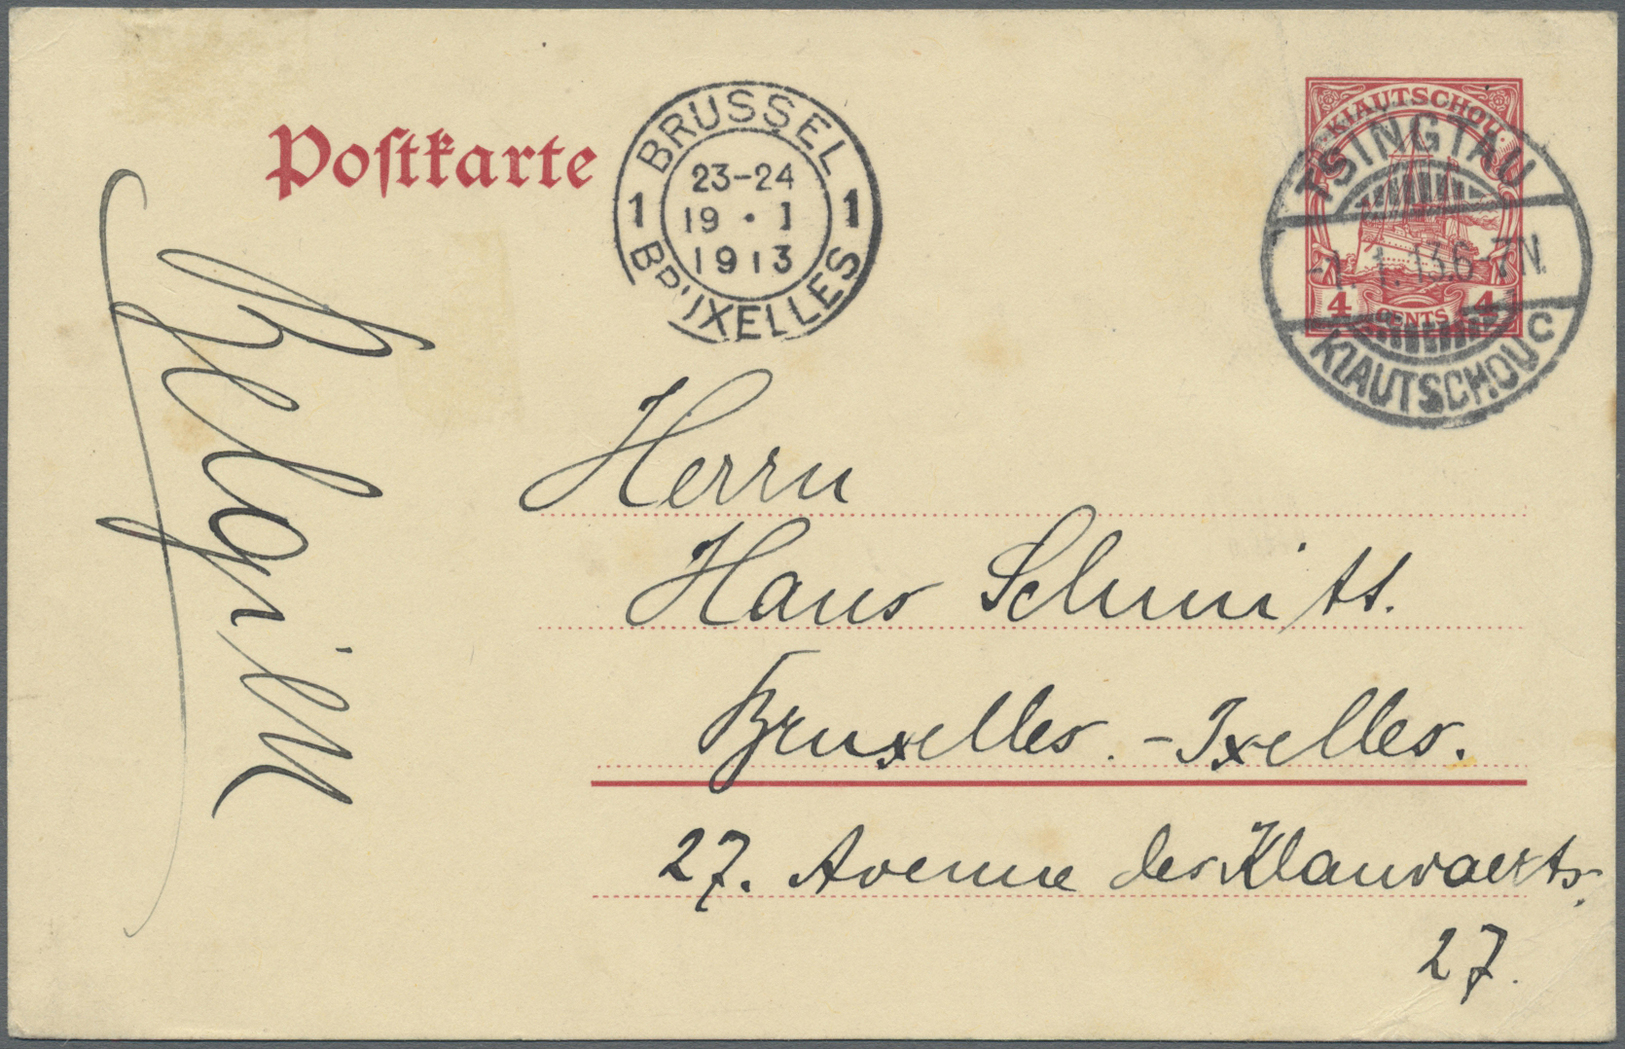 Postkarte
BRUSSEL
1 23-24 1
19 · I
1913
BRUXELLES
KIAUTSCHOU
4 CENTS 4
TSINGTAU
-1. 1. 13. 6-7N.
KIAUTSCHOU C
Belgien
Herrn
Hans Schmitt.
Bruxelles. - Ixelles.
27. Avenue des Klauwaerts.
27.